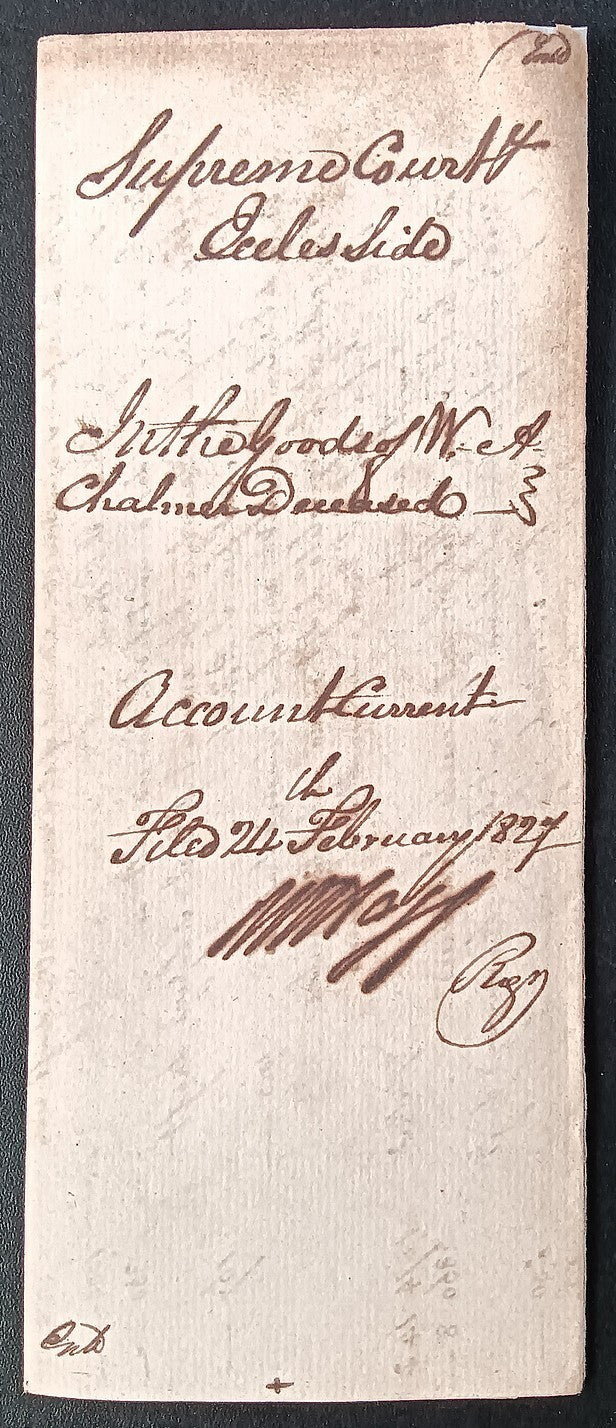 Ent'd
Supreme Court
Eccles Side
In the Goods of W. A.
Chalmer Deceased
Account Current
Filed 24th February 1827
Regr
Entd